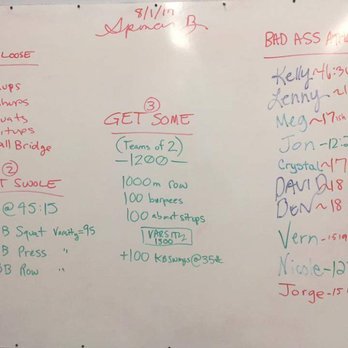 8/1/17
Spencer B.
LOOSE
ups
uats
tups
all Bridge
②
T SWOLE
@ 45:15
B Squat Varsity=95
B Press "
B Row "
③
GET SOME
(Teams of 2)
-1200-
1000m row
100 burpees
100 abmat situps
VARSITY
1500
+100 KB Swings @ 35#
BAD ASS
Kelly~16:30
Lenny~1
Meg~17
Jon~12:2
Crystal~17
DAVID~18
BEN~18
Vern~1519
Nicole~12
Jorge~151